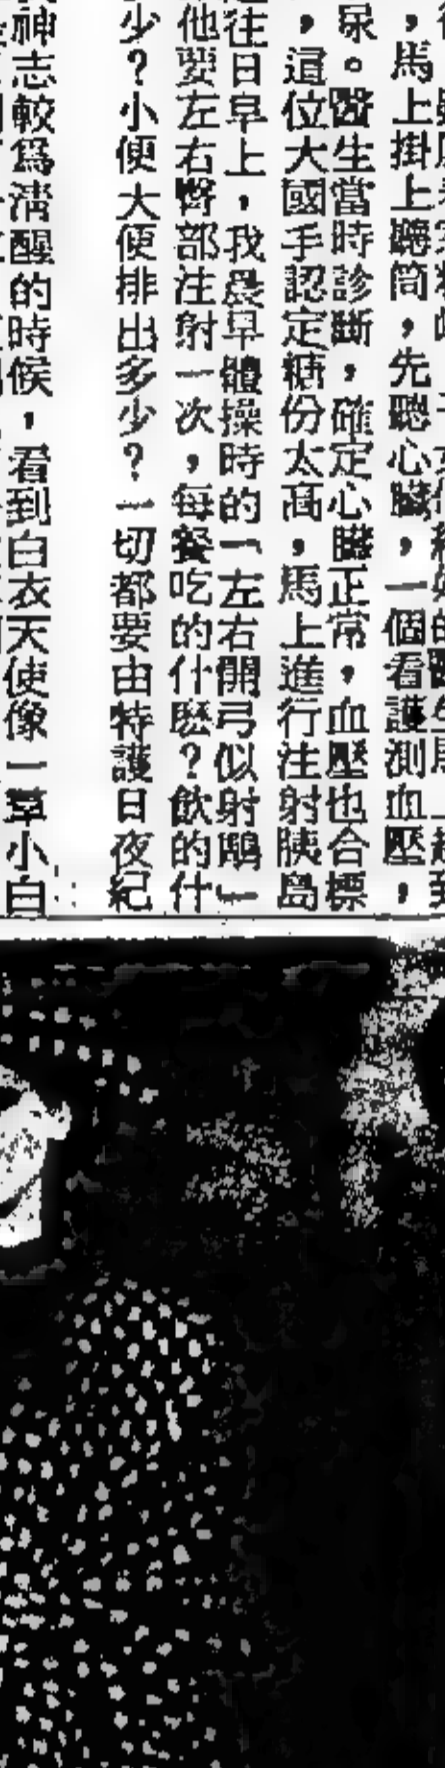 ，馬上掛上聽筒，先聽心臟，一個看護測血壓，
尿。醫生當時診斷，確定心臟正常，血壓也合標
，這位大國手認定糖份太高，馬上進行注射胰島
往日早上，我晨早體操時的「左右開弓似射鵰」
他要左右臀部注射一次，每餐吃的什麽？飲的什
少？小便大便排出多少？一切都要由特護日夜紀
神志較爲清醒的時候，看到白衣天使像一羣小白